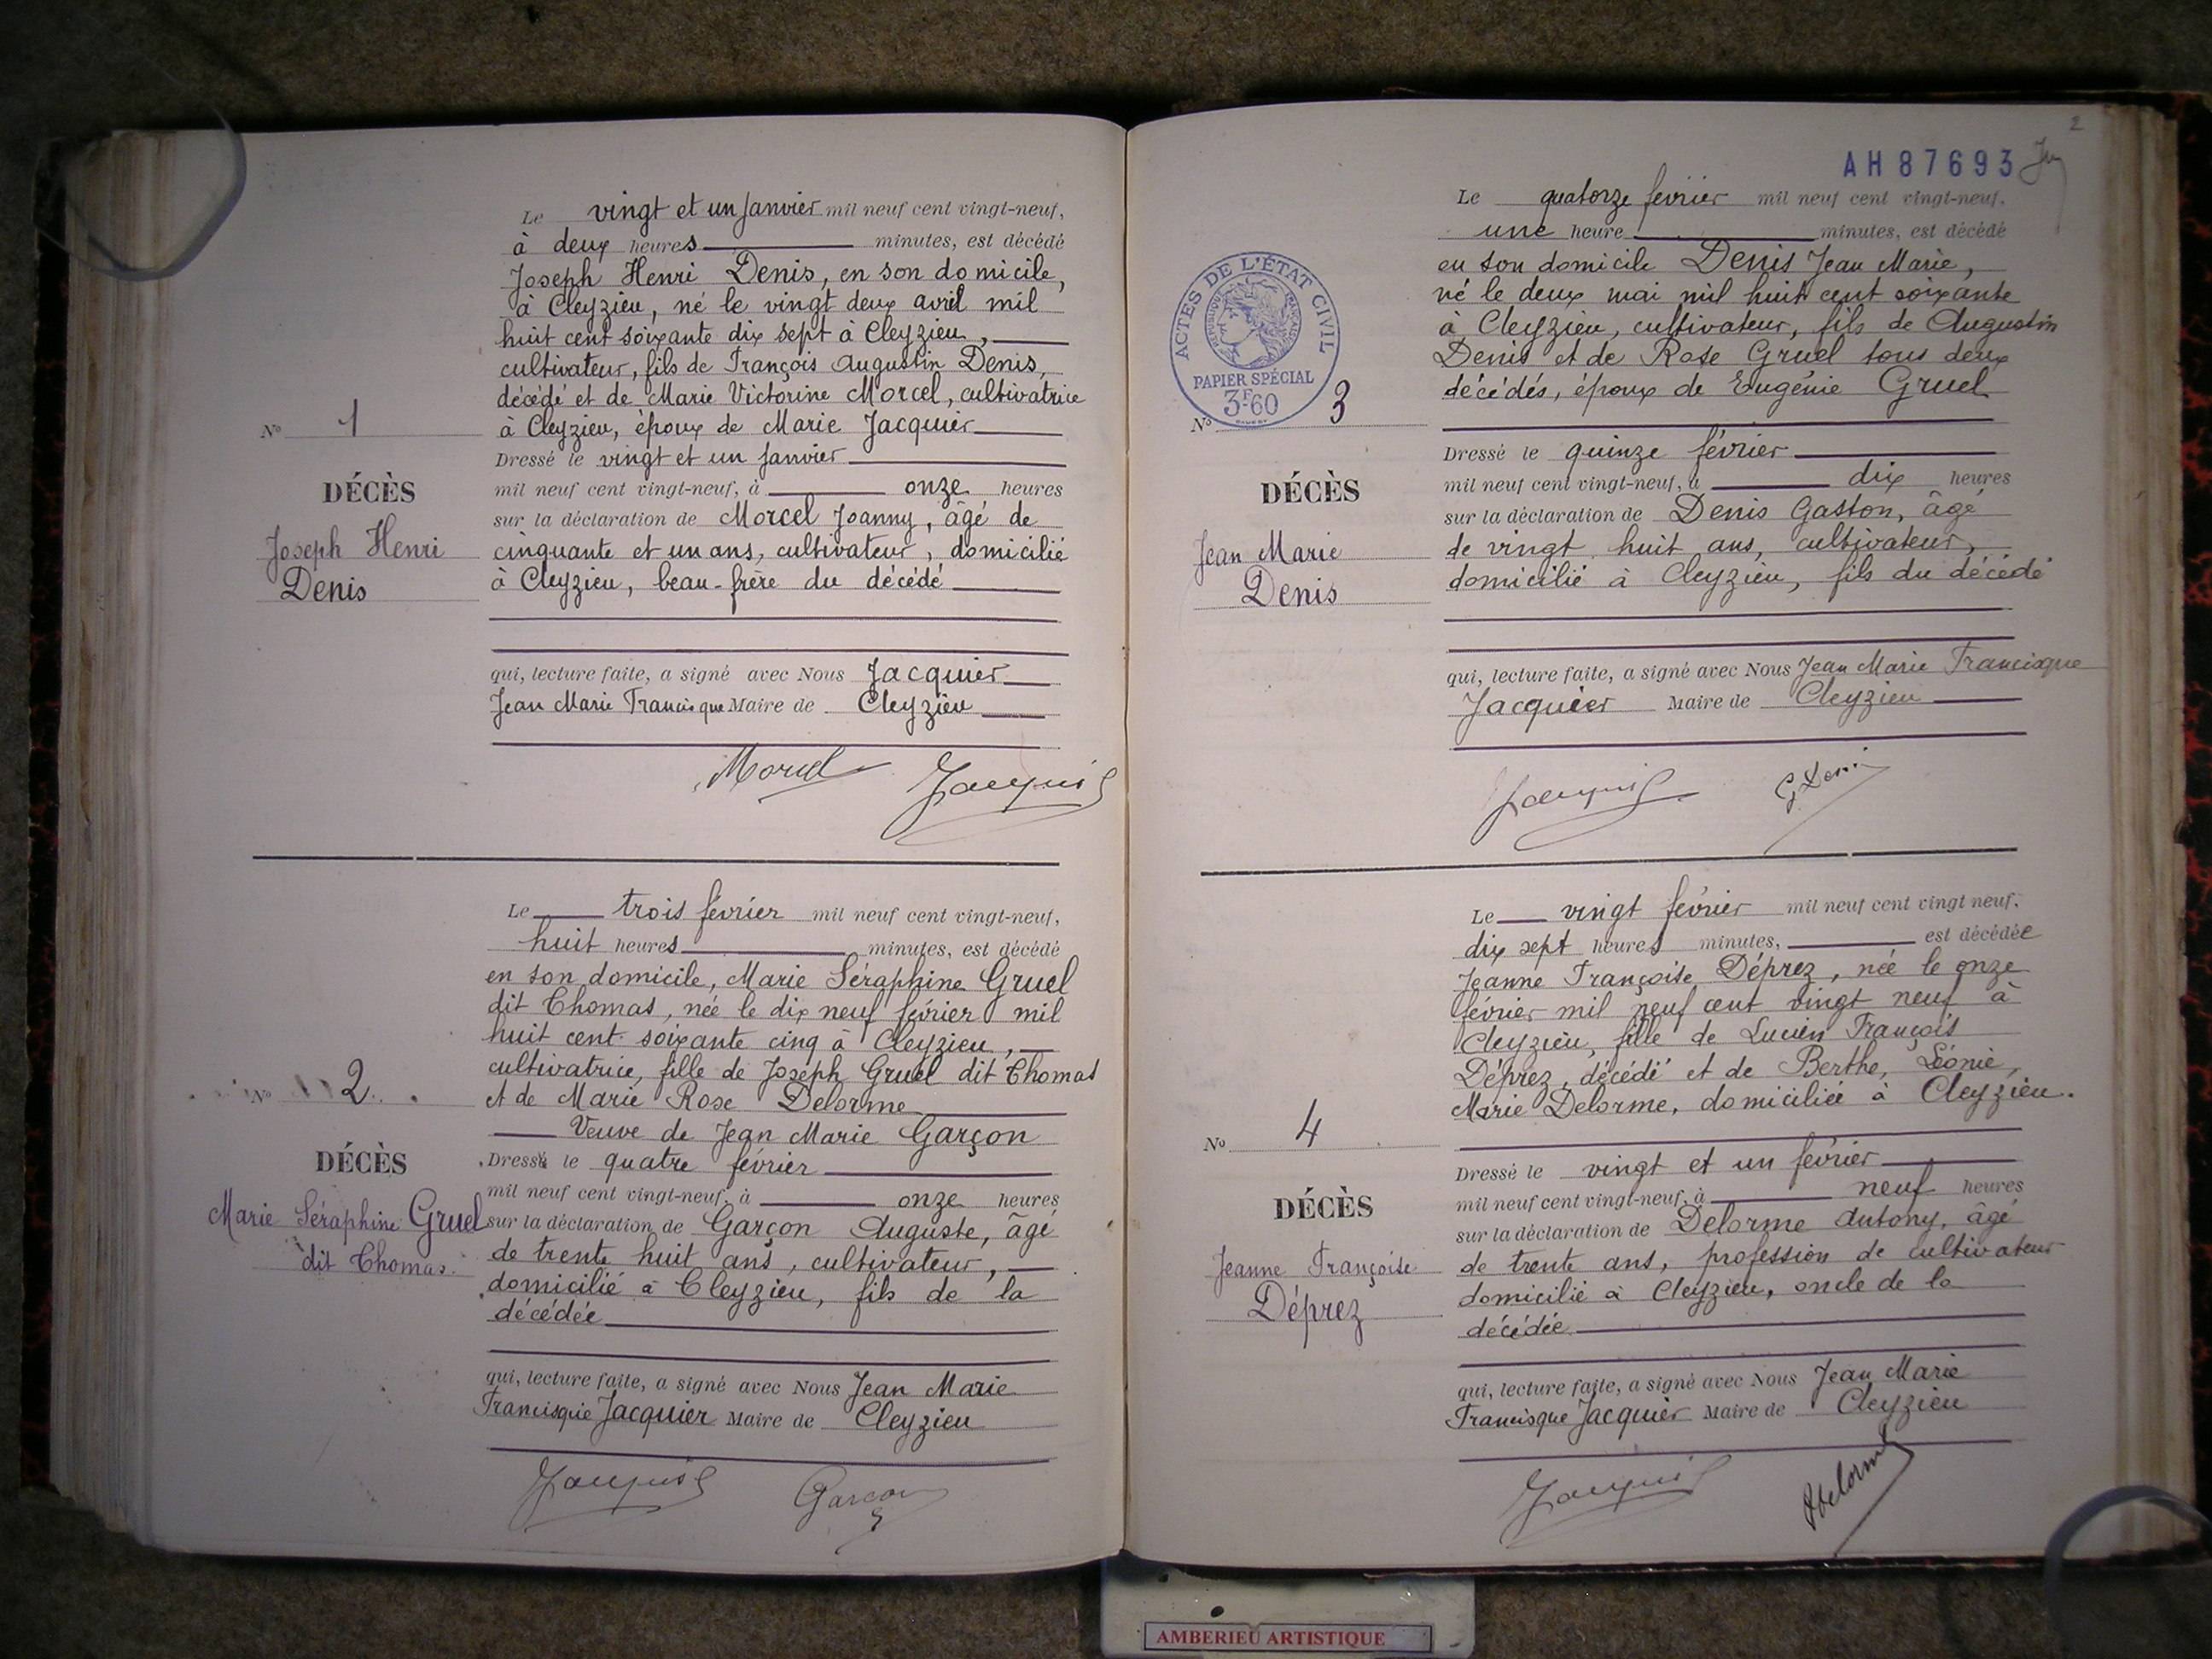 Le vingt et un janvier mil neuf cent vingt-neuf,
à deux heures minutes, est décédé
Joseph Henri Denis, en son domicile,
à Cleyzieu, né le vingt deux avril mil
huit cent soixante dix sept à Cleyzieu,
cultivateur, fils de François Augustin Denis,
décédé et de Marie Victorine Morcel, cultivatrice
à Cleyzieu, époux de Marie Jacquier
Nº 1
Dressé le vingt et un janvier
DÉCÈS
mil neuf cent vingt-neuf, à onze heures
sur la déclaration de Morcel Joanny, âgé de
Joseph Henri
Denis
cinquante et un ans, cultivateur, domicilié
à Cleyzieu, beau-frère du décédé
qui, lecture faite, a signé avec Nous Jacquier
Jean Marie Francisque Maire de Cleyzieu
Morcel Jacquier
Le trois février mil neuf cent vingt-neuf,
huit heures minutes, est décédé
en son domicile, Marie Séraphine Gruel
dit Thomas, née le dix neuf février mil
huit cent soixante cinq à Cleyzieu,
cultivatrice, fille de Joseph Gruel dit Thomas
Nº 2
et de Marie Rose Delorme
Veuve de Jean Marie Garçon
DÉCÈS
Dressé le quatre février
mil neuf cent vingt-neuf, à onze heures
Marie Séraphine Gruel
dit Thomas
sur la déclaration de Garçon Auguste, âgé
de trente huit ans, cultivateur,
domicilié à Cleyzieu, fils de la
décédée
qui, lecture faite, a signé avec Nous Jean Marie
Francisque Jacquier Maire de Cleyzieu
Jacquier Garçon
2
AH87693
Le quatorze février mil neuf cent vingt-neuf,
une heure minutes, est décédé
en son domicile Denis Jean Marie,
né le deux mai mil huit cent soixante
à Cleyzieu, cultivateur, fils de Augustin
Denis et de Rose Gruel tous deux
décédés, époux de Eugénie Gruel
ACTES DE L'ÉTAT CIVIL
RÉPUBLIQUE FRANÇAISE
PAPIER SPÉCIAL
3F60
Nº 3
Dressé le quinze février
DÉCÈS
mil neuf cent vingt-neuf, à dix heures
sur la déclaration de Denis Gaston, âgé
Jean Marie
Denis
de vingt huit ans, cultivateur,
domicilié à Cleyzieu, fils du décédé
qui, lecture faite, a signé avec Nous Jean Marie Francisque
Jacquier Maire de Cleyzieu
Jacquier G. Denis
Le vingt février mil neuf cent vingt neuf,
dix sept heures minutes, est décédée
Jeanne Françoise Déprez, née le onze
février mil neuf cent vingt neuf à
Cleyzieu, fille de Lucien François
Déprez, décédé et de Berthe, Léonie,
Marie Delorme, domiciliée à Cleyzieu.
Nº 4
Dressé le vingt et un février
DÉCÈS
mil neuf cent vingt-neuf, à neuf heures
sur la déclaration de Delorme Antony, âgé
Jeanne Françoise
Déprez
de trente ans, profession de cultivateur
domicilié à Cleyzieu, oncle de la
décédée
qui, lecture faite, a signé avec Nous Jean Marie
Francisque Jacquier Maire de Cleyzieu
Jacquier Adelorme
AMBERIEU ARTISTIQUE